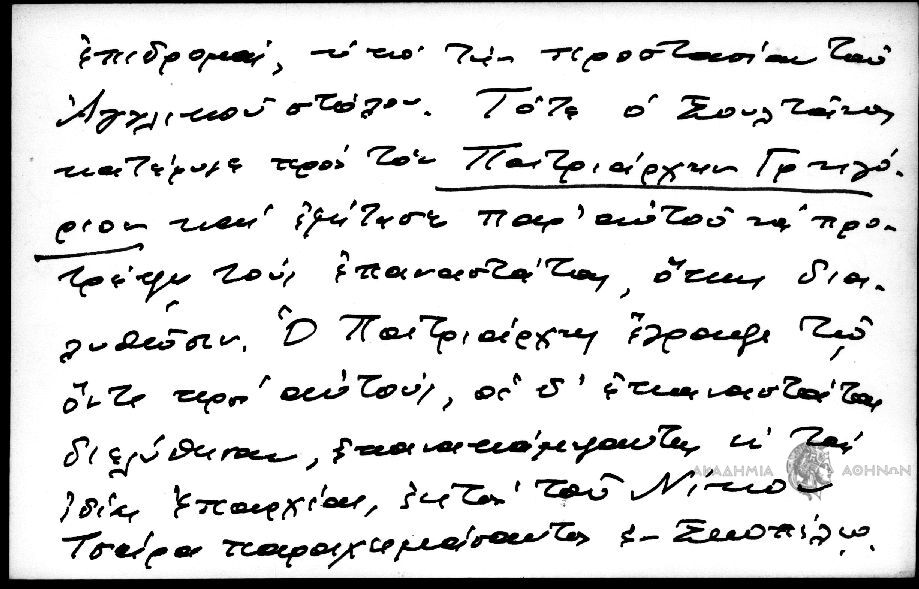 ἐπιδρομαί, ὑπὸ τὴν προστασίαν τοῦ
Ἀγγλικοῦ στόλου. Τότε ὁ Σουλτᾶνος
κατέφυγε πρὸς τὸν Πατριάρχην Γρηγό-
ριον καὶ ἐζήτησε παρ' αὐτοῦ νὰ προ-
τρέψῃ τοὺς ἐπαναστάτας, ὅπως δια-
λυθῶσιν. Ὁ Πατριάρχης ἔγραψε τῷ
ὄντι πρὸς αὐτούς, οἱ δ' ἐπαναστάται
διελύθησαν, ἐπανακάμψαντες κ τὰς
ἰδίας ἐπαρχίας, ἐκτὸς τοῦ Νίκου
Τσάρα παραχειμάσαντος ἐν Σκοπέλῳ.
ΑΚΑΔΗΜΙΑ ΑΘΗΝΩΝ